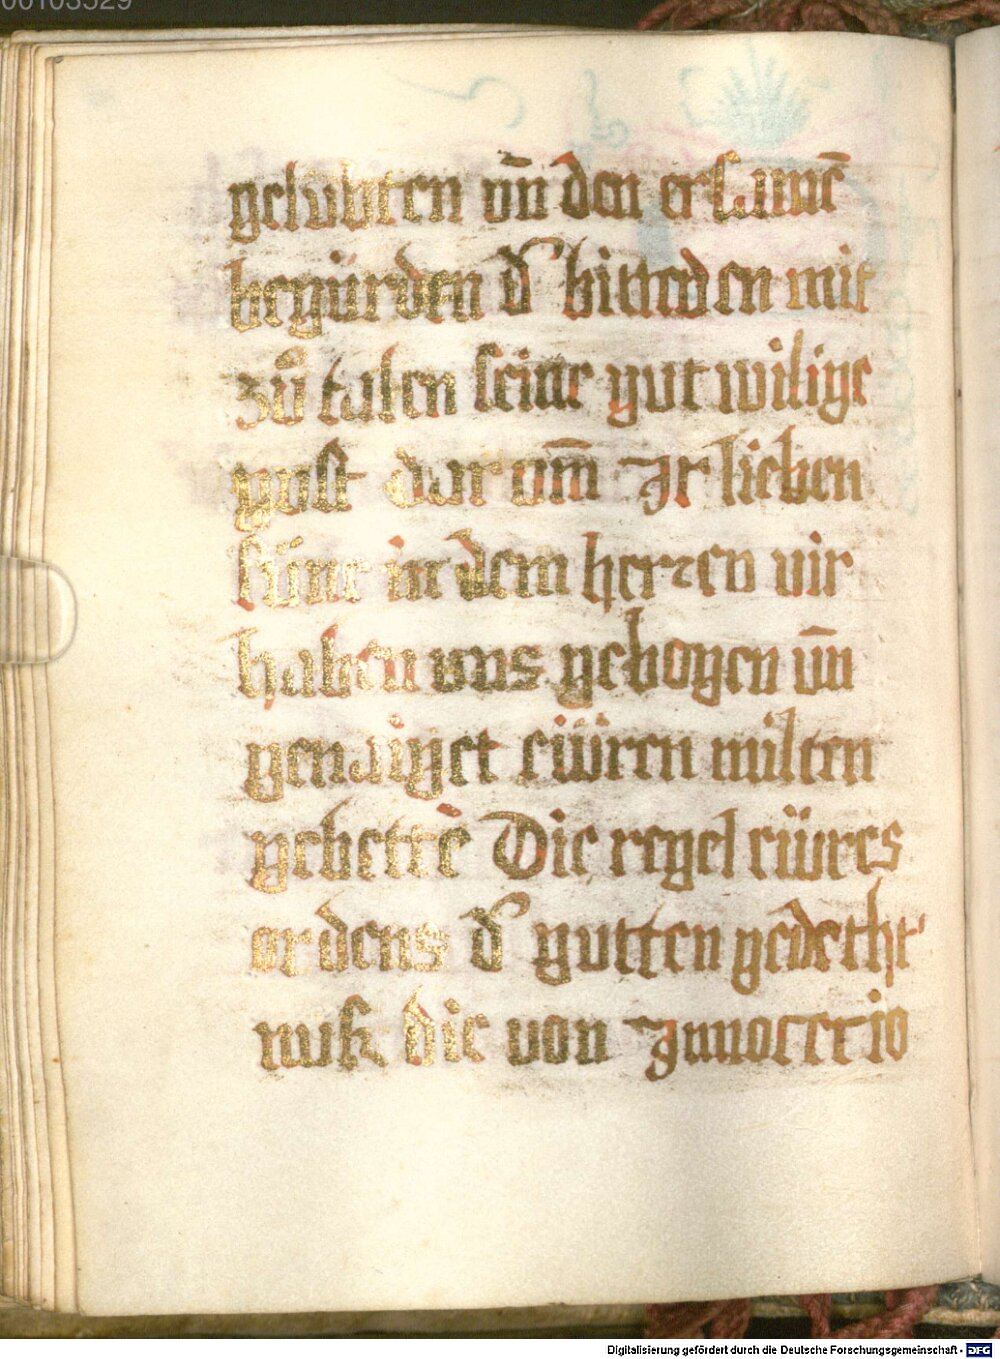 00103529
gelubten vn̄ den ersamē
begürden d' bitteden mit
zū talen seine gut wilige
gust dar om̄ Ir lieben
süne in dem herren vir
haben vns gebogen vn̄
genaiget eiẅren milten
gebettē Die regel eiẅres
ordens d' gutten gedetht'
nusz die von Innocecio
Digitalisierung gefördert durch die Deutsche Forschungsgemeinschaft - DFG